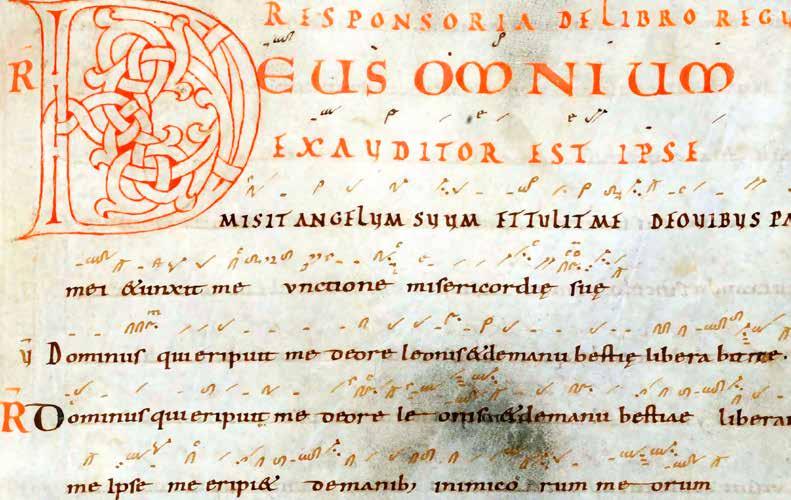 RESPONSORIA DE LIBRO REGU
R̄ DEUS OMNIUM
EXAUDITOR EST IPSE
MISIT ANGELUM SUUM ET TULIT ME DE OUIBUS PA
mei &unxit me unctione misericordię suę
V̄ Dominus qui eripuit me de ore leonis & de manu bestię libera bit me.
R̄ Dominus qui eripuit me de ore le onis & de manu bestiae liberau
me Ipse me eripi& de manib; inimico rum me orum